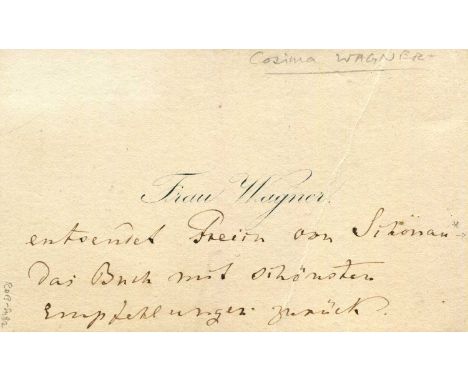 Cosima WAGNER
Frau Wagner.
entsendet Freiin von Schönau
das Buch mit schönsten
Empfehlungen zurück.